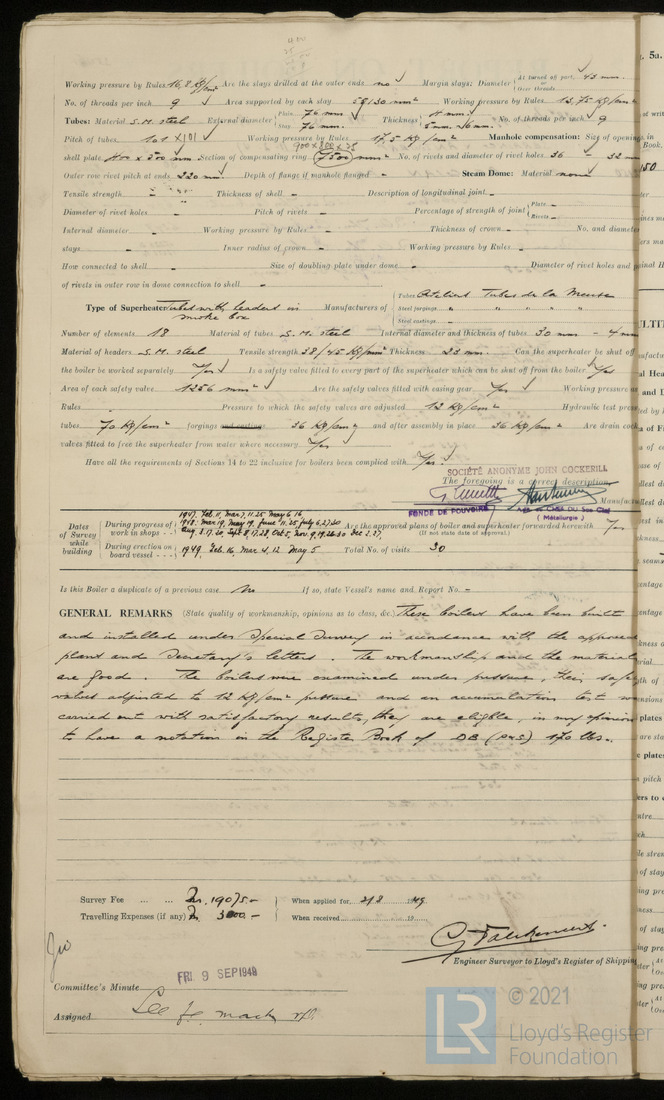 Working pressure by Rules 16,8 Kg/cm² Are the stays drilled at the outer ends no Margin stays: Diameter { At turned off part, 43 mm. or Over threads
No. of threads per inch 9 Area supported by each stay Working pressure by Rules 13,75 Kg/cm²
Tubes: Material S.M. steel External diameter { Plain 76 mm. Stay 76 mm. Thickness { No. of threads per inch 9
Pitch of tubes 101 x 101 Working pressure by Rules 17,5 Kg/cm² Manhole compensation: Size of opening in
shell plate 400 x 300 mm Section of compensating ring 7500 mm² No. of rivets and diameter of rivet holes 36 - 32 mm
Outer row rivet pitch at ends 220 mm Depth of flange if manhole flanged - Steam Dome: Material none
Tensile strength - Thickness of shell - Description of longitudinal joint -
Diameter of rivet holes - Pitch of rivets - Percentage of strength of joint { Plate - Rivets -
Internal diameter - Working pressure by Rules - Thickness of crown - No. and diameter
stays - Inner radius of crown - Working pressure by Rules -
How connected to shell - Size of doubling plate under dome - Diameter of rivet holes and
of rivets in outer row in dome connection to shell -
Type of Superheater Tubes with headers in smoke box Manufacturers of { Tubes Ateliers Tubes de la Meuse
Steel forgings " " " "
Steel castings -
Number of elements 18 Material of tubes S.M. steel Internal diameter and thickness of tubes 30 mm - 4 mm
Material of headers S.M. steel Tensile strength 38/45 Kg/mm² Thickness 23 mm. Can the superheater be shut off
the boiler be worked separately Yes Is a safety valve fitted to every part of the superheater which can be shut off from the boiler Yes
Area of each safety valve 1256 mm² Are the safety valves fitted with easing gear Yes Working pressure as
Rules - Pressure to which the safety valves are adjusted 12 Kg/cm² Hydraulic test press
tubes 70 Kg/cm² forgings and castings 36 Kg/cm² and after assembly in place 36 Kg/cm² Are drain cock
valves fitted to free the superheater from water where necessary Yes
Have all the requirements of Sections 14 to 22 inclusive for boilers been complied with Yes.
SOCIÉTÉ ANONYME JOHN COCKERILL
The foregoing is a correct description,
Manufac
FONDÉ DE POUVOIRS
( Métallurgie )
Dates of Survey while building { During progress of work in shops - - { 1947, Feb. 11, Mar 7, 11, 25 May 6, 16,
1948. Mar. 19, May 19, June 11, 25, July 6, 27, 30
Aug. 3, 17, 20, Sept. 8, 17, 28, Oct. 5, Nov. 9, 19, 26, 30 Dec. 2, 27, Are the approved plans of boiler and superheater forwarded herewith Yes
(If not state date of approval.)
During erection on board vessel - - - { 1949, Feb. 16, Mar 4, 12 May 5 Total No. of visits 30
Is this Boiler a duplicate of a previous case No If so, state Vessel's name and Report No. -
GENERAL REMARKS (State quality of workmanship, opinions as to class, &c.) These boilers have been built
and installed under Special Survey in accordance with the approved
plans and Secretary's letters. The workmanship and the material
are good. The boilers were examined under pressure, their safe
valves adjusted to 12 Kg/cm² pressure and an accumulation test
carried out with satisfactory results, they are eligible, in my opinion
to have a notation in the Register Book of DB 170 lbs.
Survey Fee ... ... 19075.- When applied for 31.8 1949
Travelling Expenses (if any) 3000.- When received 19
Engineer Surveyor to Lloyd's Register of Shipping
FRI 9 SEP 1949
Committee's Minute
Assigned See
© 2021
LR Lloyd's Register
Foundation
5a.